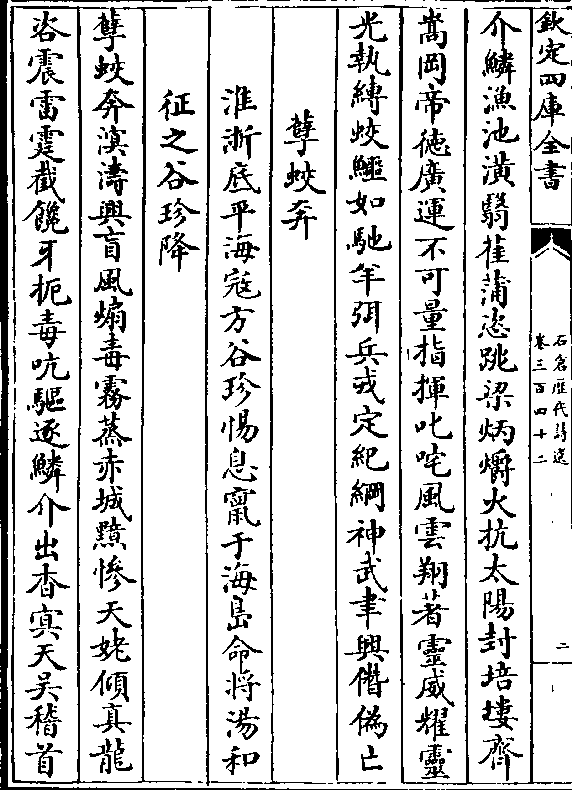 欽定四庫全書
石倉歷代詩選
卷三百四十二
二
介鱗漁池潢翳萑蒲恣跳梁炳爝火抗太陽封培塿齊
嵩岡帝徳廣運不可量指揮叱咤風雲翔著靈威耀靈
光執縛蛟鱷如馳羊弭兵戎定紀綱神武聿興僣偽亡
孽蛟奔
淮浙底平海寇方谷珍惕息竄于海島命將湯和
征之谷珍降
孽蛟奔溟濤興盲風煽毒霧蒸赤城黯慘天姥傾真龍
咨震雷霆截饞牙扼毒吭驅逐鱗介出杳冥天吴稽首